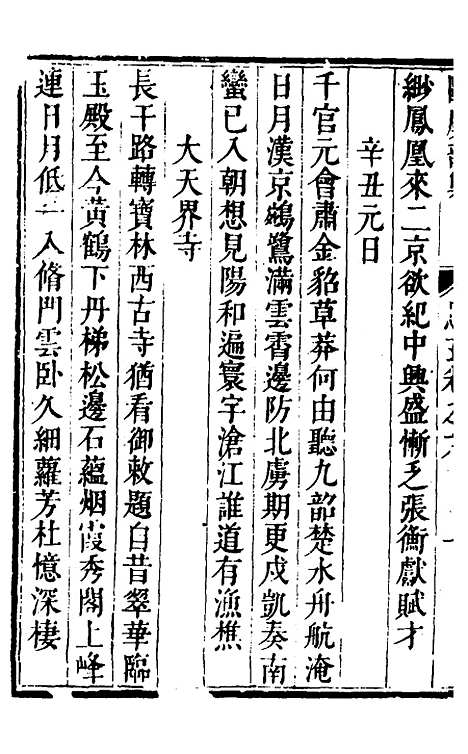 緲鳳凰來二京欲紀中興盛慚乏張衡獻賦才
辛丑元日
千官元會肅金貂草莽何由聽九韶楚水舟航淹
日月漢京鵷鷺滿雲霄邊防北虜期更戍凱奏南
蠻已入朝想見陽和遍寰宇滄江誰道有漁樵
大天界寺
長干路轉寶林西古寺猶看御敕題白昔翠華臨
玉殿至今黃鶴下丹梯松邊石蘊烟霞秀閣上峰
連日月低一入脩門雲卧久細蘿芳杜憶深棲